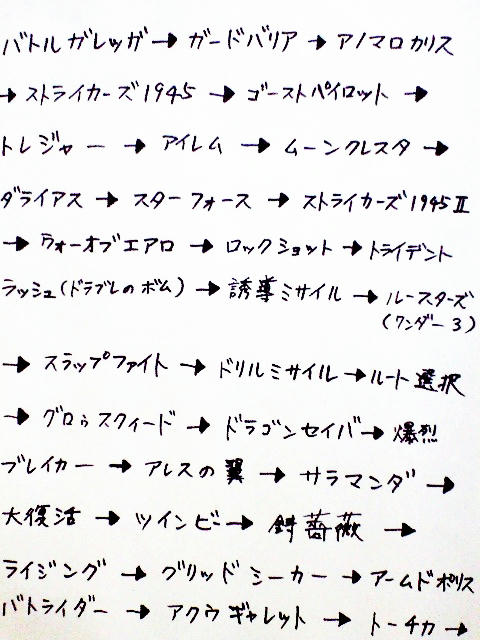 バトルガレッガ→ガードバリア→アノマロカリス
→ストライカーズ1945→ゴーストパイロット→
トレジャー→アイレム→ムーンクレスタ→
ダライアス→スターフォース→ストライカーズ1945Ⅱ
→ウォーオブエアロ→ロックショット→トライデント
ラッシュ(ドラブレのボム)→誘導ミサイル→ルースターズ
(ワンダー3)
→スラップファイト→ドリルミサイル→ルート選択
→グロゥスクィード→ドラゴンセイバー→爆烈
ブレイカー→アレスの翼→サラマンダ→
大復活→ツインビー→鋳薔薇→
ライジング→グリッドシーカー→アームドポリス
バトライダー→アクウギャレット→トーチカ→